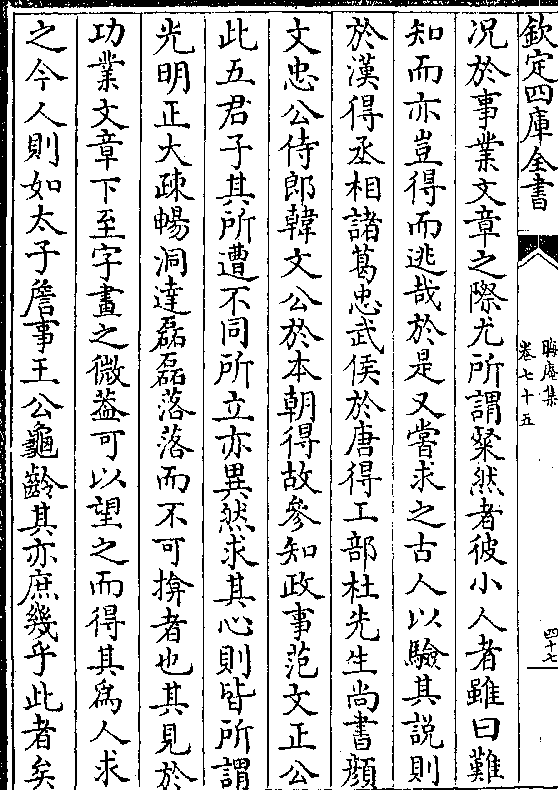 欽定四庫全書
晦庵集
卷七十五
四十七
况於事業文章之際尤所謂粲然者彼小人者雖曰難
知而亦豈得而逃哉於是又嘗求之古人以驗其説則
於漢得丞相諸葛忠武侯於唐得工部杜先生尚書顔
文忠公侍郎韓文公於本朝得故參知政事范文正公
此五君子其所遭不同所立亦異然求其心則皆所謂
光明正大疎暢洞達磊磊落落而不可揜者也其見於
功業文章下至字畫之微葢可以望之而得其爲人求
之今人則如太子詹事王公龜齡其亦庶幾乎此者矣